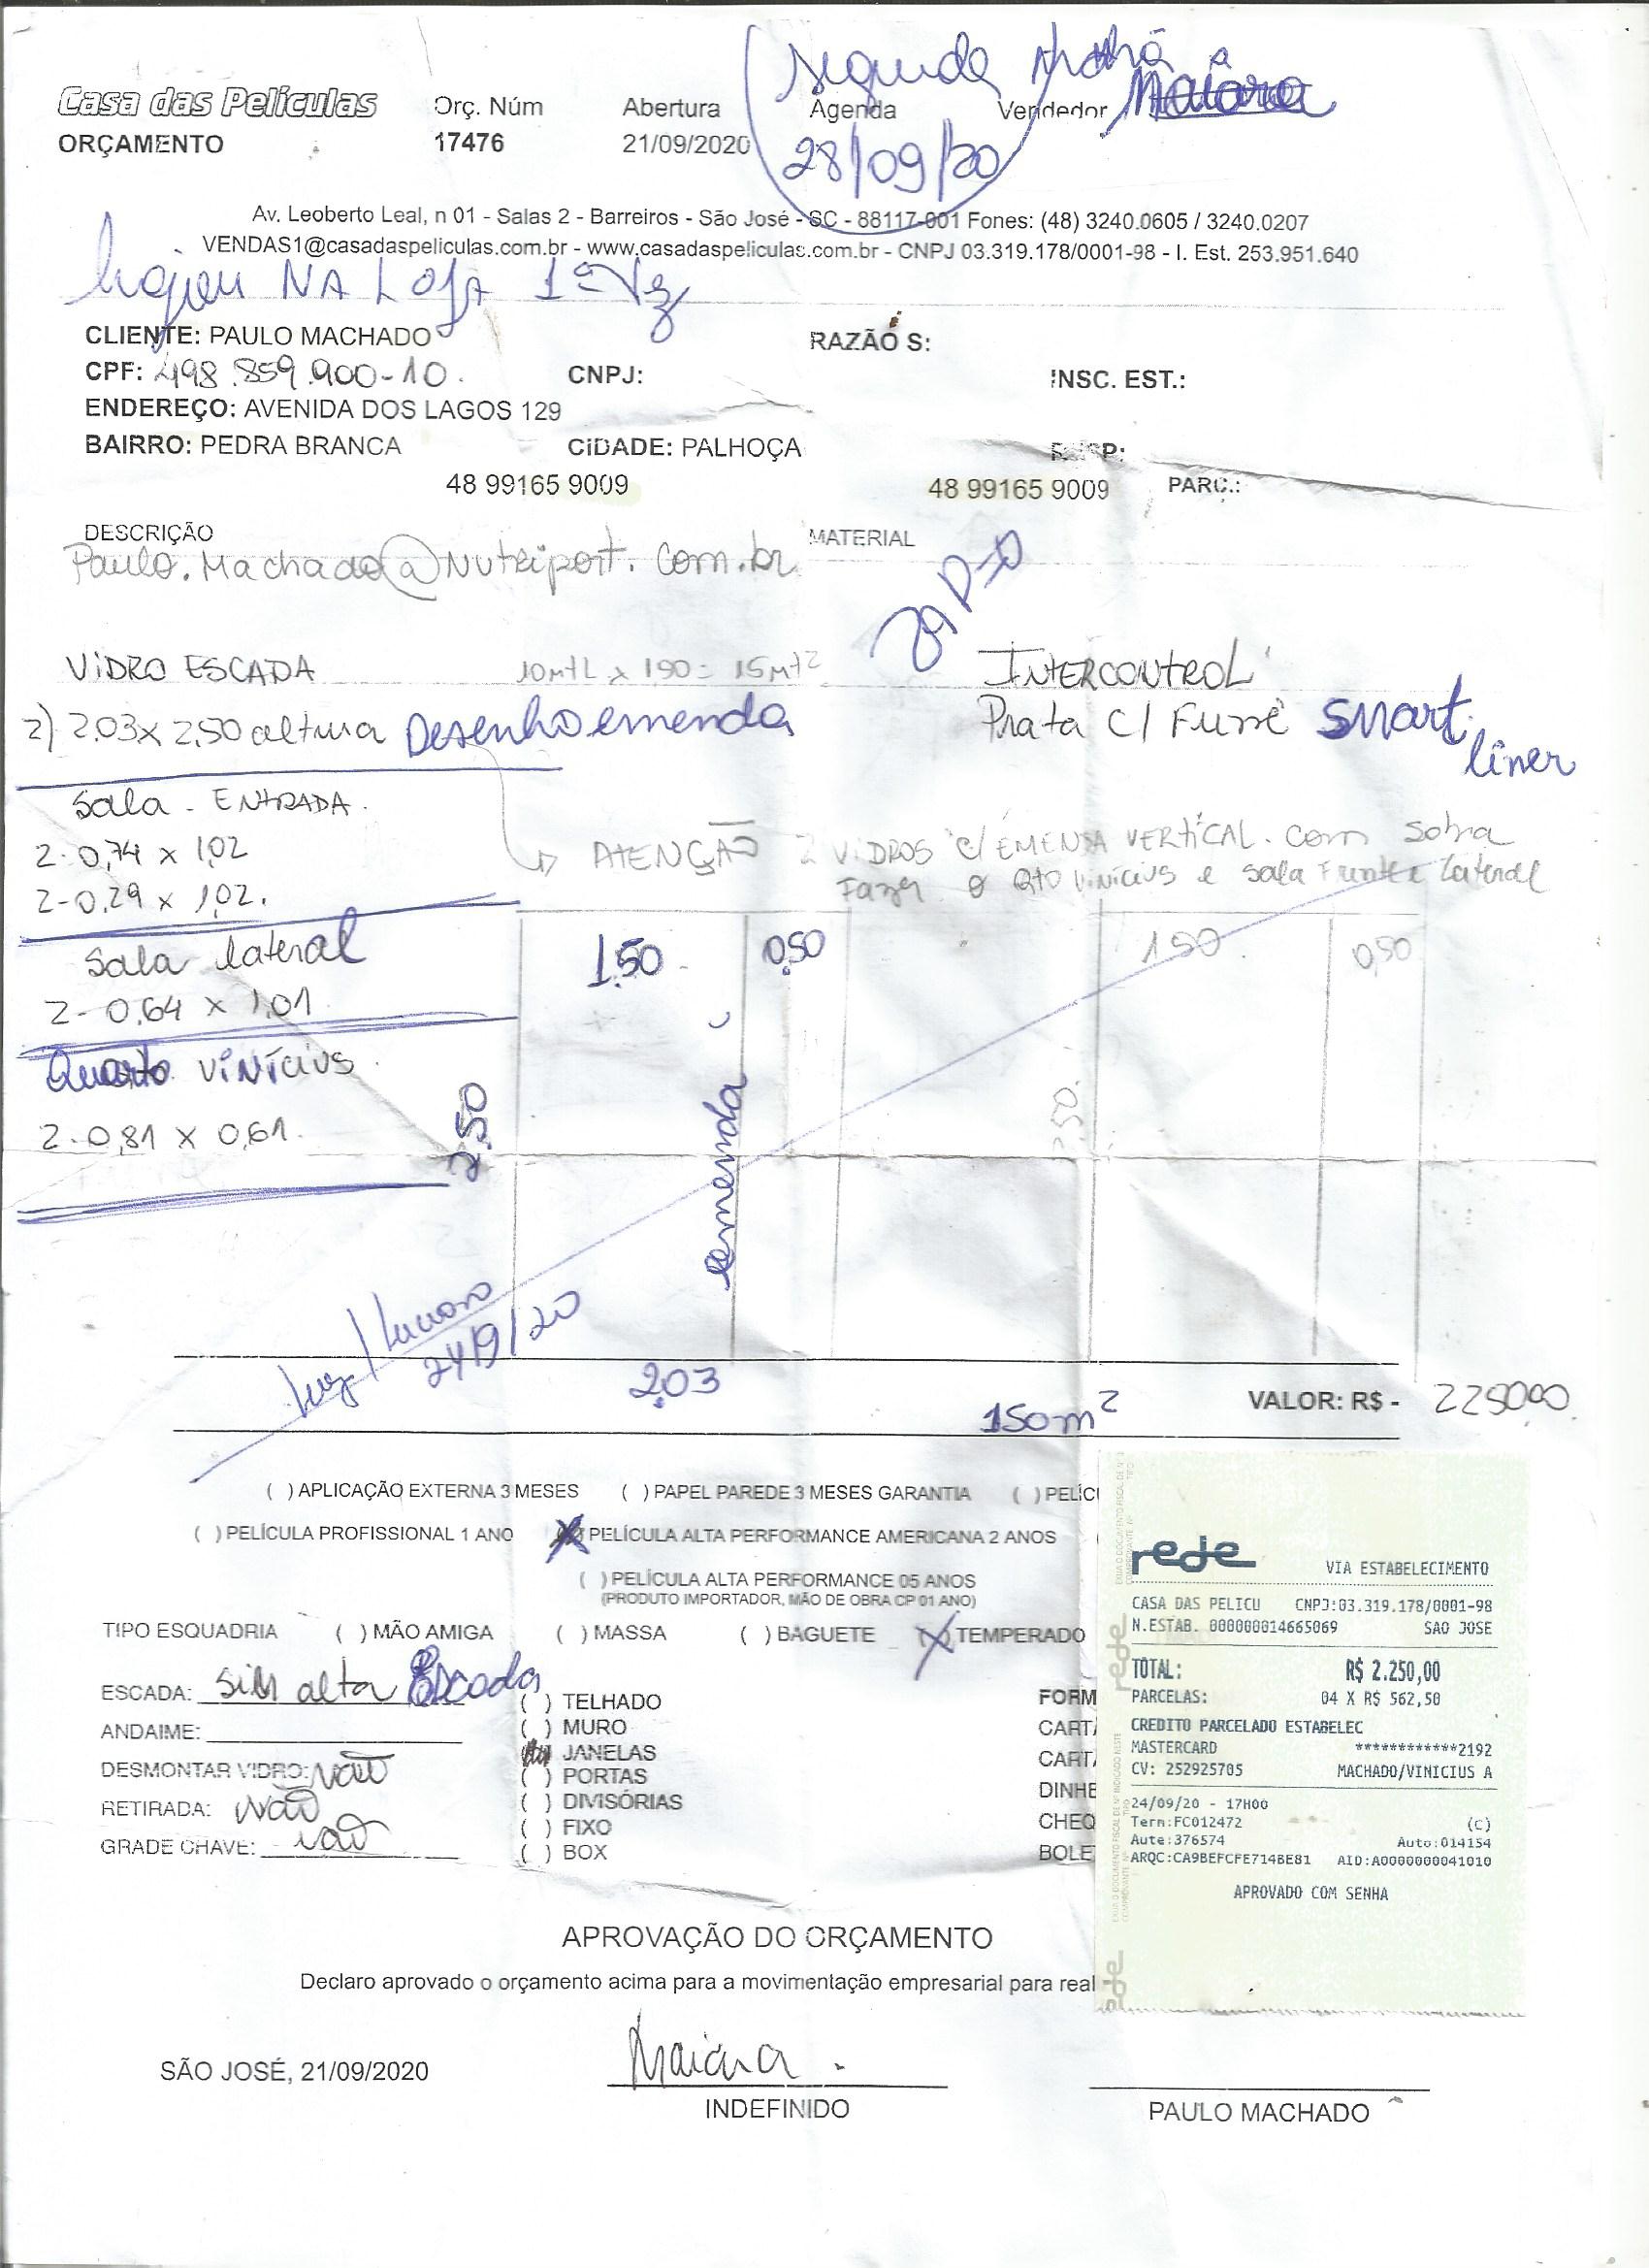 segunda
Casa das Películas
Orç. Núm
Abertura
Agenda
Vendedor Maiara
ORÇAMENTO
17476
21/09/2020
28/09/20
Av. Leoberto Leal, n 01 - Salas 2 - Barreiros - São José - SC - 88117-001 Fones: (48) 3240.0605 / 3240.0207
VENDAS1@casadaspeliculas.com.br - www.casadaspeliculas.com.br - CNPJ 03.319.178/0001-98 - I. Est. 253.951.640
NA LOJA 1ª Vez
CLIENTE: PAULO MACHADO
RAZÃO S:
CPF: 498.859.900-10.
CNPJ:
INSC. EST.:
ENDEREÇO: AVENIDA DOS LAGOS 129
BAIRRO: PEDRA BRANCA
CIDADE: PALHOÇA
48 99165 9009
48 99165 9009
PARC.:
DESCRIÇÃO
MATERIAL
Paulo.Machado@Nutriport.com.br
VIDRO ESCADA
10mtL x 1,90 = 15mt²
INTERCONTROL
2) 2.03 x 2,50 altura Desenho emenda
Prata C/ Fumê Smart
liner
Sala - ENTRADA.
2-0,74 x 1,02
ATENÇÃO 2 VIDROS C/ EMENSA VERTICAL. com sobra
2-0,29 x 1,02.
Fazer o Qto Vinicius e sala Frente Lateral
Sala lateral
1.50
0,50
1.50
0,50
2-0,64 x 1,01
Quarto Vinícius
2-0,81 x 0,61.
2.50
emenda
2,50.
Luciano
24/9/20
2.03
150m²
VALOR: R$ - 2250,00
( ) APLICAÇÃO EXTERNA 3 MESES
( ) PAPEL PAREDE 3 MESES GARANTIA
( ) PELÍC
( ) PELÍCULA PROFISSIONAL 1 ANO
(X) PELÍCULA ALTA PERFORMANCE AMERICANA 2 ANOS
( ) PELÍCULA ALTA PERFORMANCE 05 ANOS
(PRODUTO IMPORTADOR, MÃO DE OBRA CP 01 ANO)
TIPO ESQUADRIA
( ) MÃO AMIGA
( ) MASSA
( ) BAGUETE
(X) TEMPERADO
ESCADA: Sim alta Escada
ANDAIME:
DESMONTAR VIDRO: NÃO
RETIRADA: NÃO
GRADE CHAVE: NÃO
( ) TELHADO
( ) MURO
JANELAS
( ) PORTAS
( ) DIVISÓRIAS
( ) FIXO
( ) BOX
FORM
CART
CART
DINHE
CHEQ
BOLE
rede
VIA ESTABELECIMENTO
CASA DAS PELICU CNPJ:03.319.178/0001-98
N.ESTAB. 000000014665069 SAO JOSE
TOTAL: R$ 2.250,00
PARCELAS: 04 X R$ 562,50
CREDITO PARCELADO ESTABELEC
MASTERCARD ************2192
CV: 252925705 MACHADO/VINICIUS A
24/09/20 - 17H00
Term:FC012472 (C)
Aute:376574 Auto:014154
ARQC:CA9BEFCFE714BE81 AID:A0000000041010
APROVADO COM SENHA
APROVAÇÃO DO ORÇAMENTO
Declaro aprovado o orçamento acima para a movimentação empresarial para real
SÃO JOSÉ, 21/09/2020
Maiara.
INDEFINIDO
PAULO MACHADO